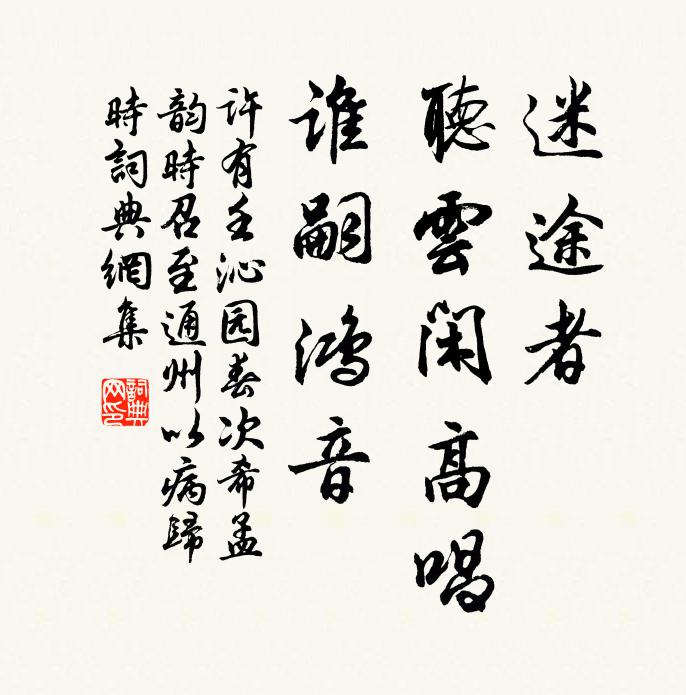 迷途者
聽雲閑高唱
誰嗣鴻音
許有壬沁园春次希孟
韵時召至通州以病歸
時詞典網集
詞典
网印